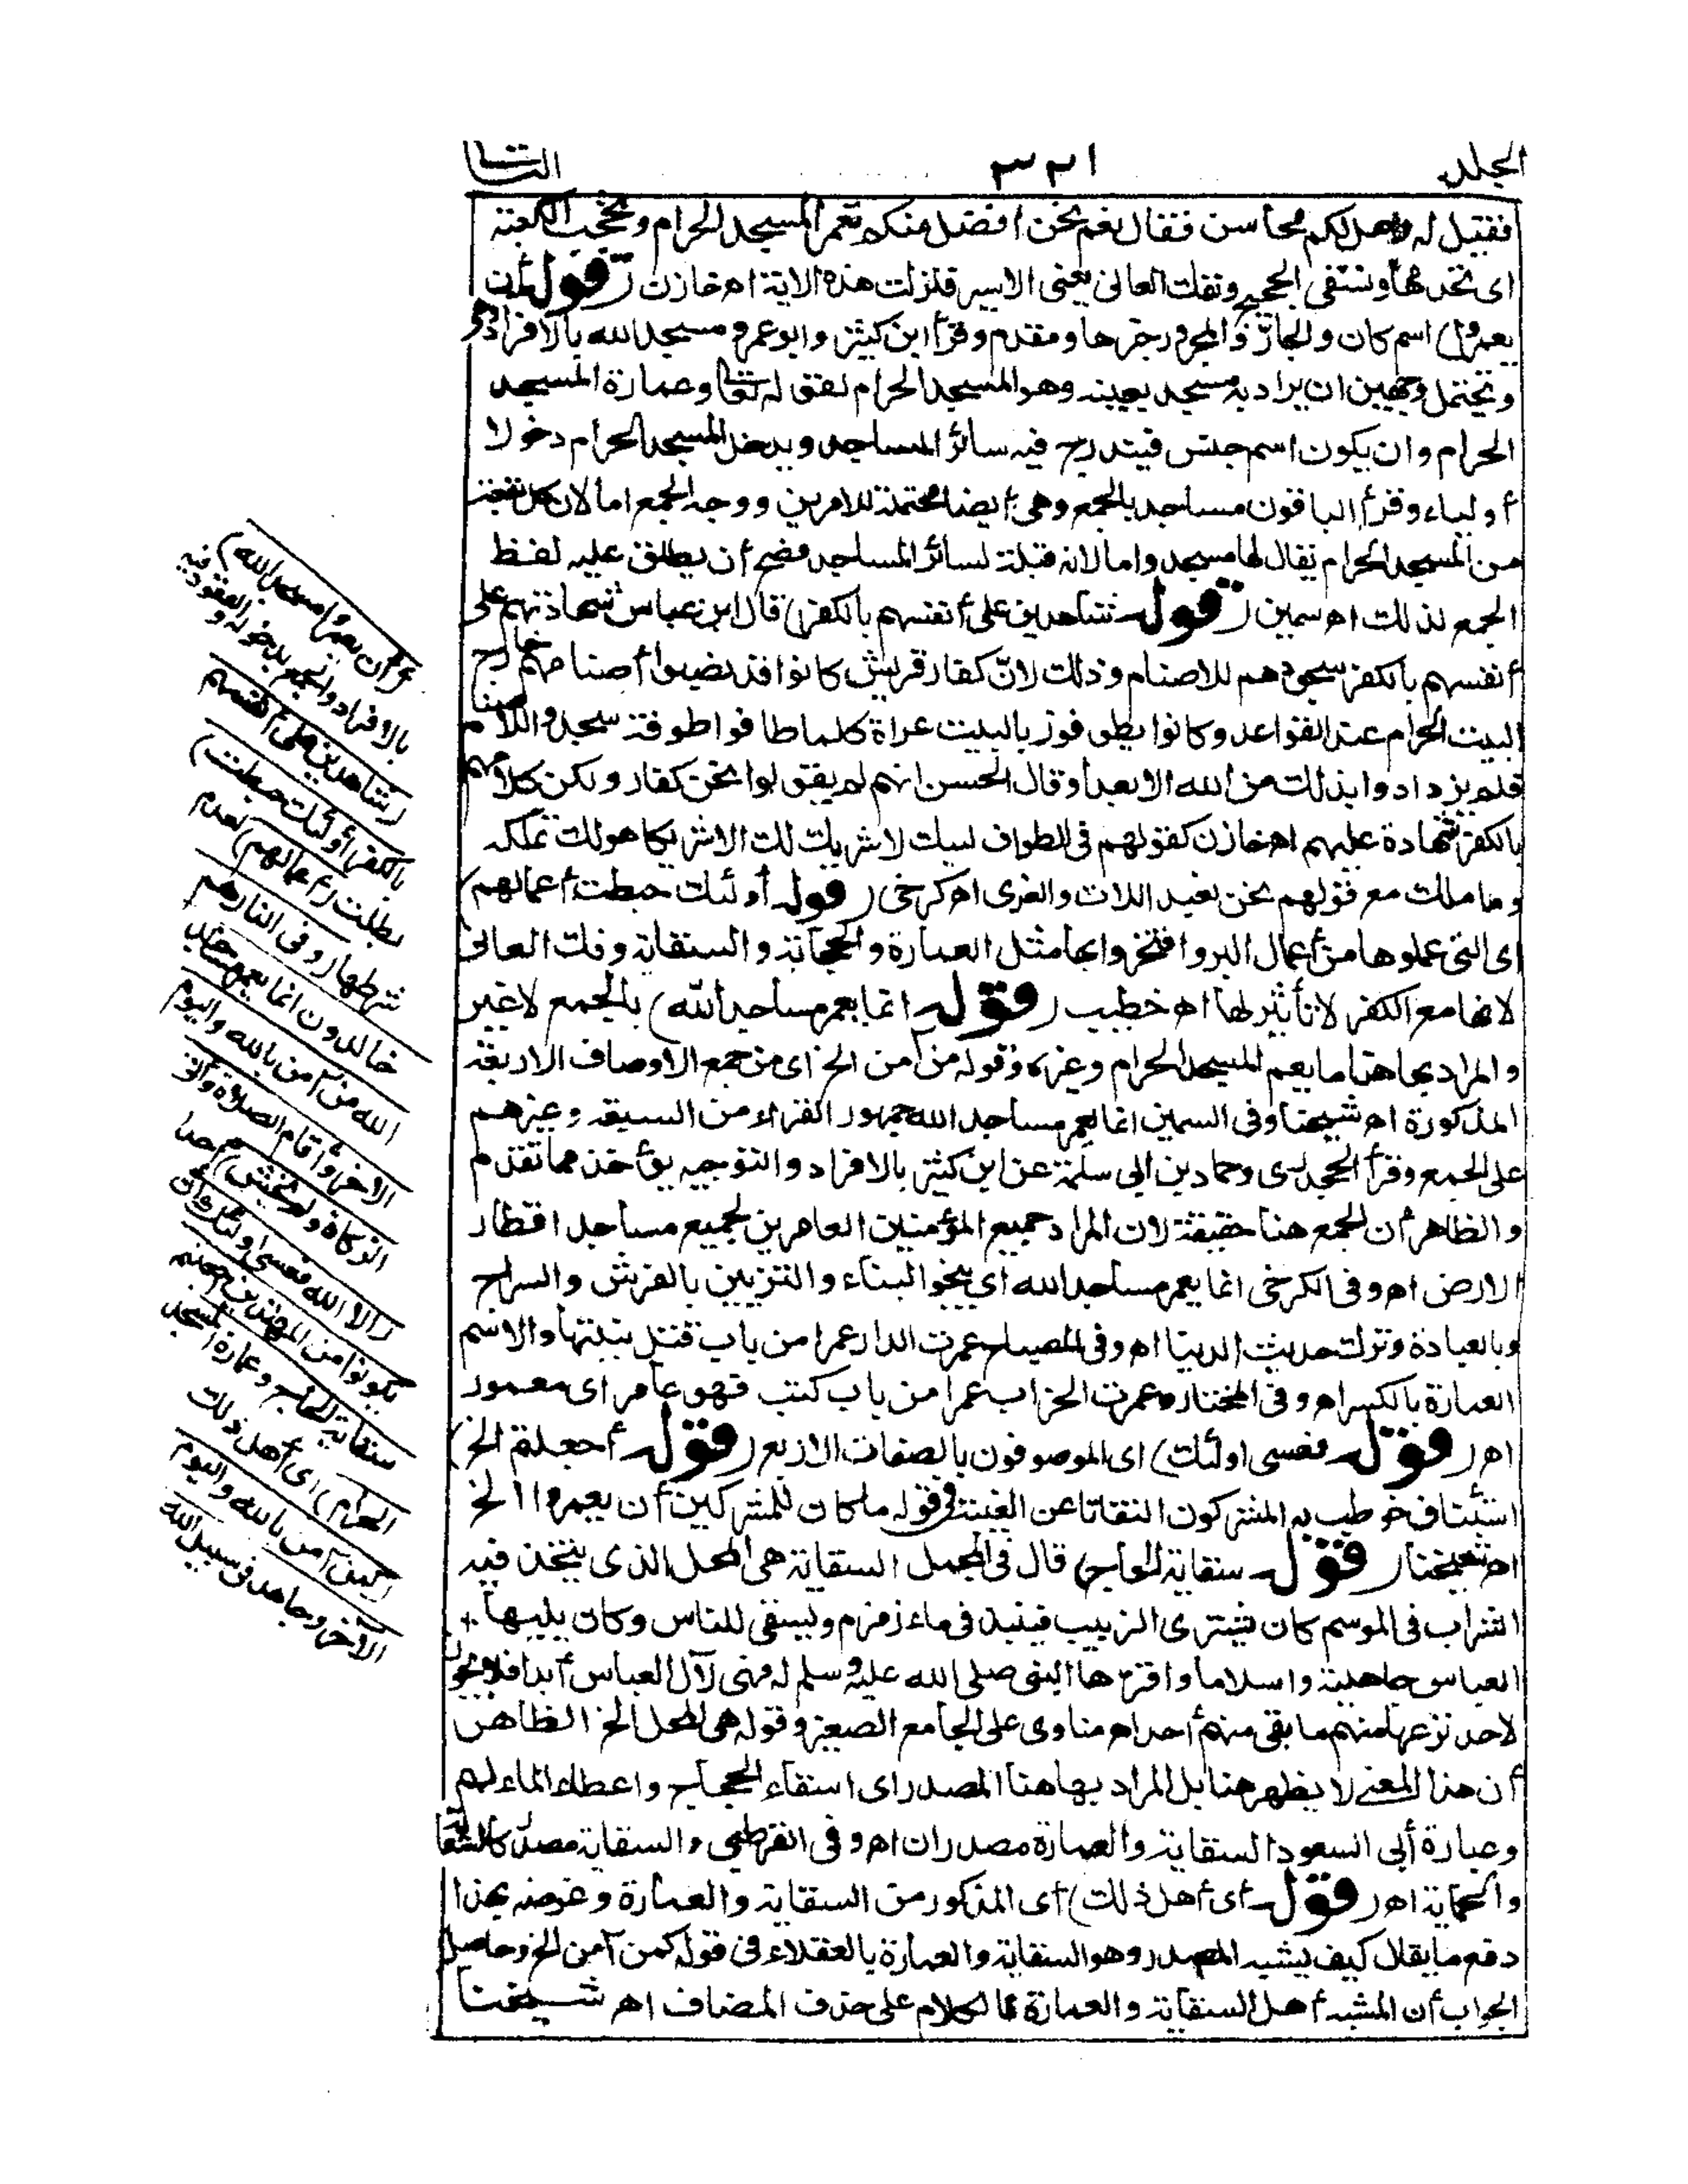 المجلد ٣٢١ الثانى
فقيل له وهل لكم محاسن فقال نعم نحن أفضل منكم نعمر المسجد الحرام ونحجب الكعبة
اى نخدمها ونسقى الحجيج ونفك العانى يعنى الاسير فنزلت هذه الاية اه خازن (قوله أن
يعمروا) اسم كان والجار والمجرور خبرها ومقدم وقرأ ابن كثير وابو عمرو مسجد الله بالافراد وهو
ويحتمل وجهين ان يراد به مسجد بعينه وهو المسجد الحرام لقوله تعا وعمارة المسجد
الحرام وان يكون اسم جنس فيندرج فيه سائر المساجد ويدخل المسجد الحرام دخولا
أوليا وقرأ الباقون مساجد بالجمع وهى أيضا محتملة للامرين ووجه الجمع اما لان كل بقعة
من المسجد الحرام يقال لها مسجد واما لانه قبلة لسائر المساجد فصح أن يطلق عليه لفظ
الجمع لذلك اه سمين (قوله شاهدين على أنفسهم بالكفر) قال ابن عباس شهادتهم على
أنفسهم بالكفر سجودهم للاصنام وذلك لان كفار قريش كانوا قد نصبوا أصنامهم خارج
البيت الحرام عند القواعد وكانوا يطوفون بالبيت عراة كلما طافوا طوفة سجدوا للاصنام
فلم يزدادوا بذلك من الله الا بعدا وقال الحسن انهم لم يقولوا نحن كفار ولكن كلامهم
بالكفر شهادة عليهم اه خازن كقولهم فى الطواف لبيك لا شريك لك الا شريكا هو لك تملكه
وما ملك مع قولهم نحن نعبد اللات والعزى اه كرخى (قوله أولئك حبطت أعمالهم)
اى التى عملوها من أعمال البر وافتخروا بها مثل العمارة والحجابة والسقاية وفك العانى
لانها مع الكفر لا تأثير لها اه خطيب (قوله انما يعمر مساجد الله) بالجمع لا غير
والمراد بها هنا ما يعم المسجد الحرام وغيره وقوله من آمن الخ اى من جمع الاوصاف الاربعة
المذكورة اه شيخنا وفى السمين انما يعمر مساجد الله جمهور القراء من السبعة وغيرهم
على الجمع وقرأ الجحدرى وحماد بن ابى سلمة عن ابن كثير بالافراد والتوجيه يؤخذ مما تقدم
والظاهر أن الجمع هنا حقيقة لان المراد جميع المؤمنين العامرين لجميع مساجد اقطار
الارض اه وفى الكرخى انما يعمر مساجد الله اى بنحو البناء والتزيين بالفرش والسراج
وبالعبادة وترك حديث الدنيا اه وفى المصباح عمرت الدار عمرا من باب قتل بنيتها والاسم
العمارة بالكسر اه وفى المختار وعمرت الخراب عمرا من باب كتب فهو عامر اى معمور
اه (قوله فعسى اولئك) اى الموصوفون بالصفات الاربع (قوله أجعلتم الخ)
استئناف خوطب به المشركون التفاتا عن الغيبة فى قوله ما كان للمشركين أن يعمروا الخ
اه شيخنا (قوله سقاية الحاج) قال فى المجمل السقاية هى المحل الذى يتخذ فيه
الشراب فى الموسم كان يشترى الزبيب فينبذ فى ماء زمزم ويسقى للناس وكان يليها
العباس جاهلية واسلاما واقرها النبى صلى الله عليه وسلم له فهى لآل العباس أبدا فلا يجوز
لاحد نزعها منهم ما بقى منهم أحد اه مناوى على الجامع الصغير وقوله هى المحل الخ الظاهر
أن هذا المعنى لا يظهر هنا بل المراد بها هنا المصدر اى اسقاء الحجاج واعطاء الماء لهم
وعبارة أبى السعود السقاية والعمارة مصدران اه وفى القرطبى والسقاية مصدر كالسعاية
والحماية اه (قوله أى أهل ذلك) أى المذكور من السقاية والعمارة وغرضه بهذا
دفع ما يقال كيف يشبه المصدر وهو السقاية والعمارة بالعقلاء فى قوله كمن آمن الخ وحاصل
الجواب أن المشبه أهل السقاية والعمارة فالكلام على حذف المضاف اه شيخنا
(أن يعمروا مسجد الله)
بالافراد والجمع بدخوله والقعود فيه
(شاهدين على أنفسهم
بالكفر أولئك حبطت)
بطلت (أعمالهم) لعدم
شرطها (وفى النار هم
خالدون انما يعمر مساجد
الله من آمن بالله واليوم
الاخر وأقام الصلاة وآتى
الزكاة ولم يخش) أحدا
(الا الله فعسى اولئك أن
يكونوا من المهتدين أجعلتم
سقاية الحاج وعمارة المسجد
الحرام) اى أهل ذلك
(كمن آمن بالله واليوم
الآخر وجاهد فى سبيل الله